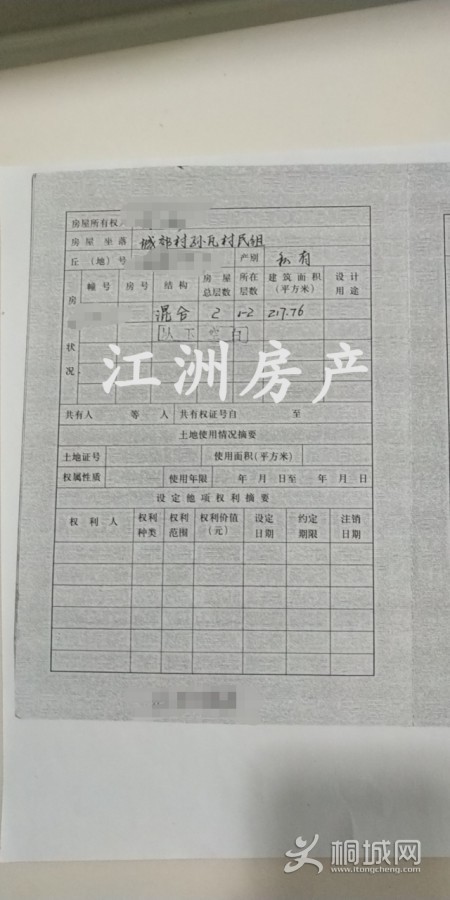 房屋所有权人
房屋坐落 城郊村孙瓦村民组
丘（地）号 产别 私有
房屋状况 幢号 房号 结构 房屋总层数 所在层数 建筑面积（平方米） 设计用途
混合 2 1-2 217.76
以下空白
江洲房产
共有人 等 人 共有权证号自 至
土地使用情况摘要
土地证号 使用面积（平方米）
权属性质 使用年限 年 月 日至 年 月 日
设定他项权利摘要
权利人 权利种类 权利范围 权利价值（元） 设定日期 约定期限 注销日期
桐城网
www.itongcheng.com